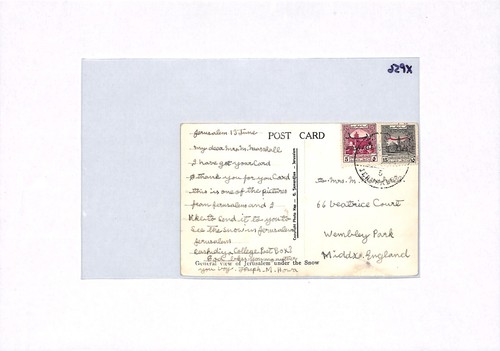 229X
POST CARD
Jerusalem 13 June
My dear Mrs. M. Marshall
I have got your Card
& thank you for you Card
this is one of the picture
from Jerusalem and I
like to send it to you to
see the snow in Jerusalem
Jerusalem
Rashidiya College Post Box
Good bye
you boy. Joseph. M.
General view of Jerusalem under the Snow
Copyright Photo
Mrs. M.
66 Beatrice Court
Wembley Park
Middx. England